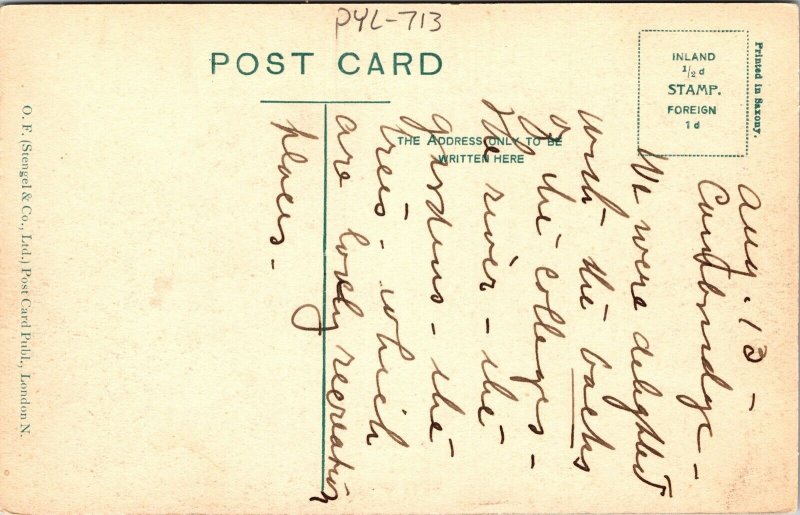 PYL-713
POST CARD
INLAND
1/2 d
STAMP.
FOREIGN
1d
Printed in Saxony.
THE ADDRESS ONLY TO BE
WRITTEN HERE
O. F. (Stengel & Co., Ltd.) Post Card Publ., London N.
Aug. 13 –
Cambridge –
We were delighted
with the backs
of the colleges –
The river – the
gardens – the
trees – which
are lovely recreation
places –